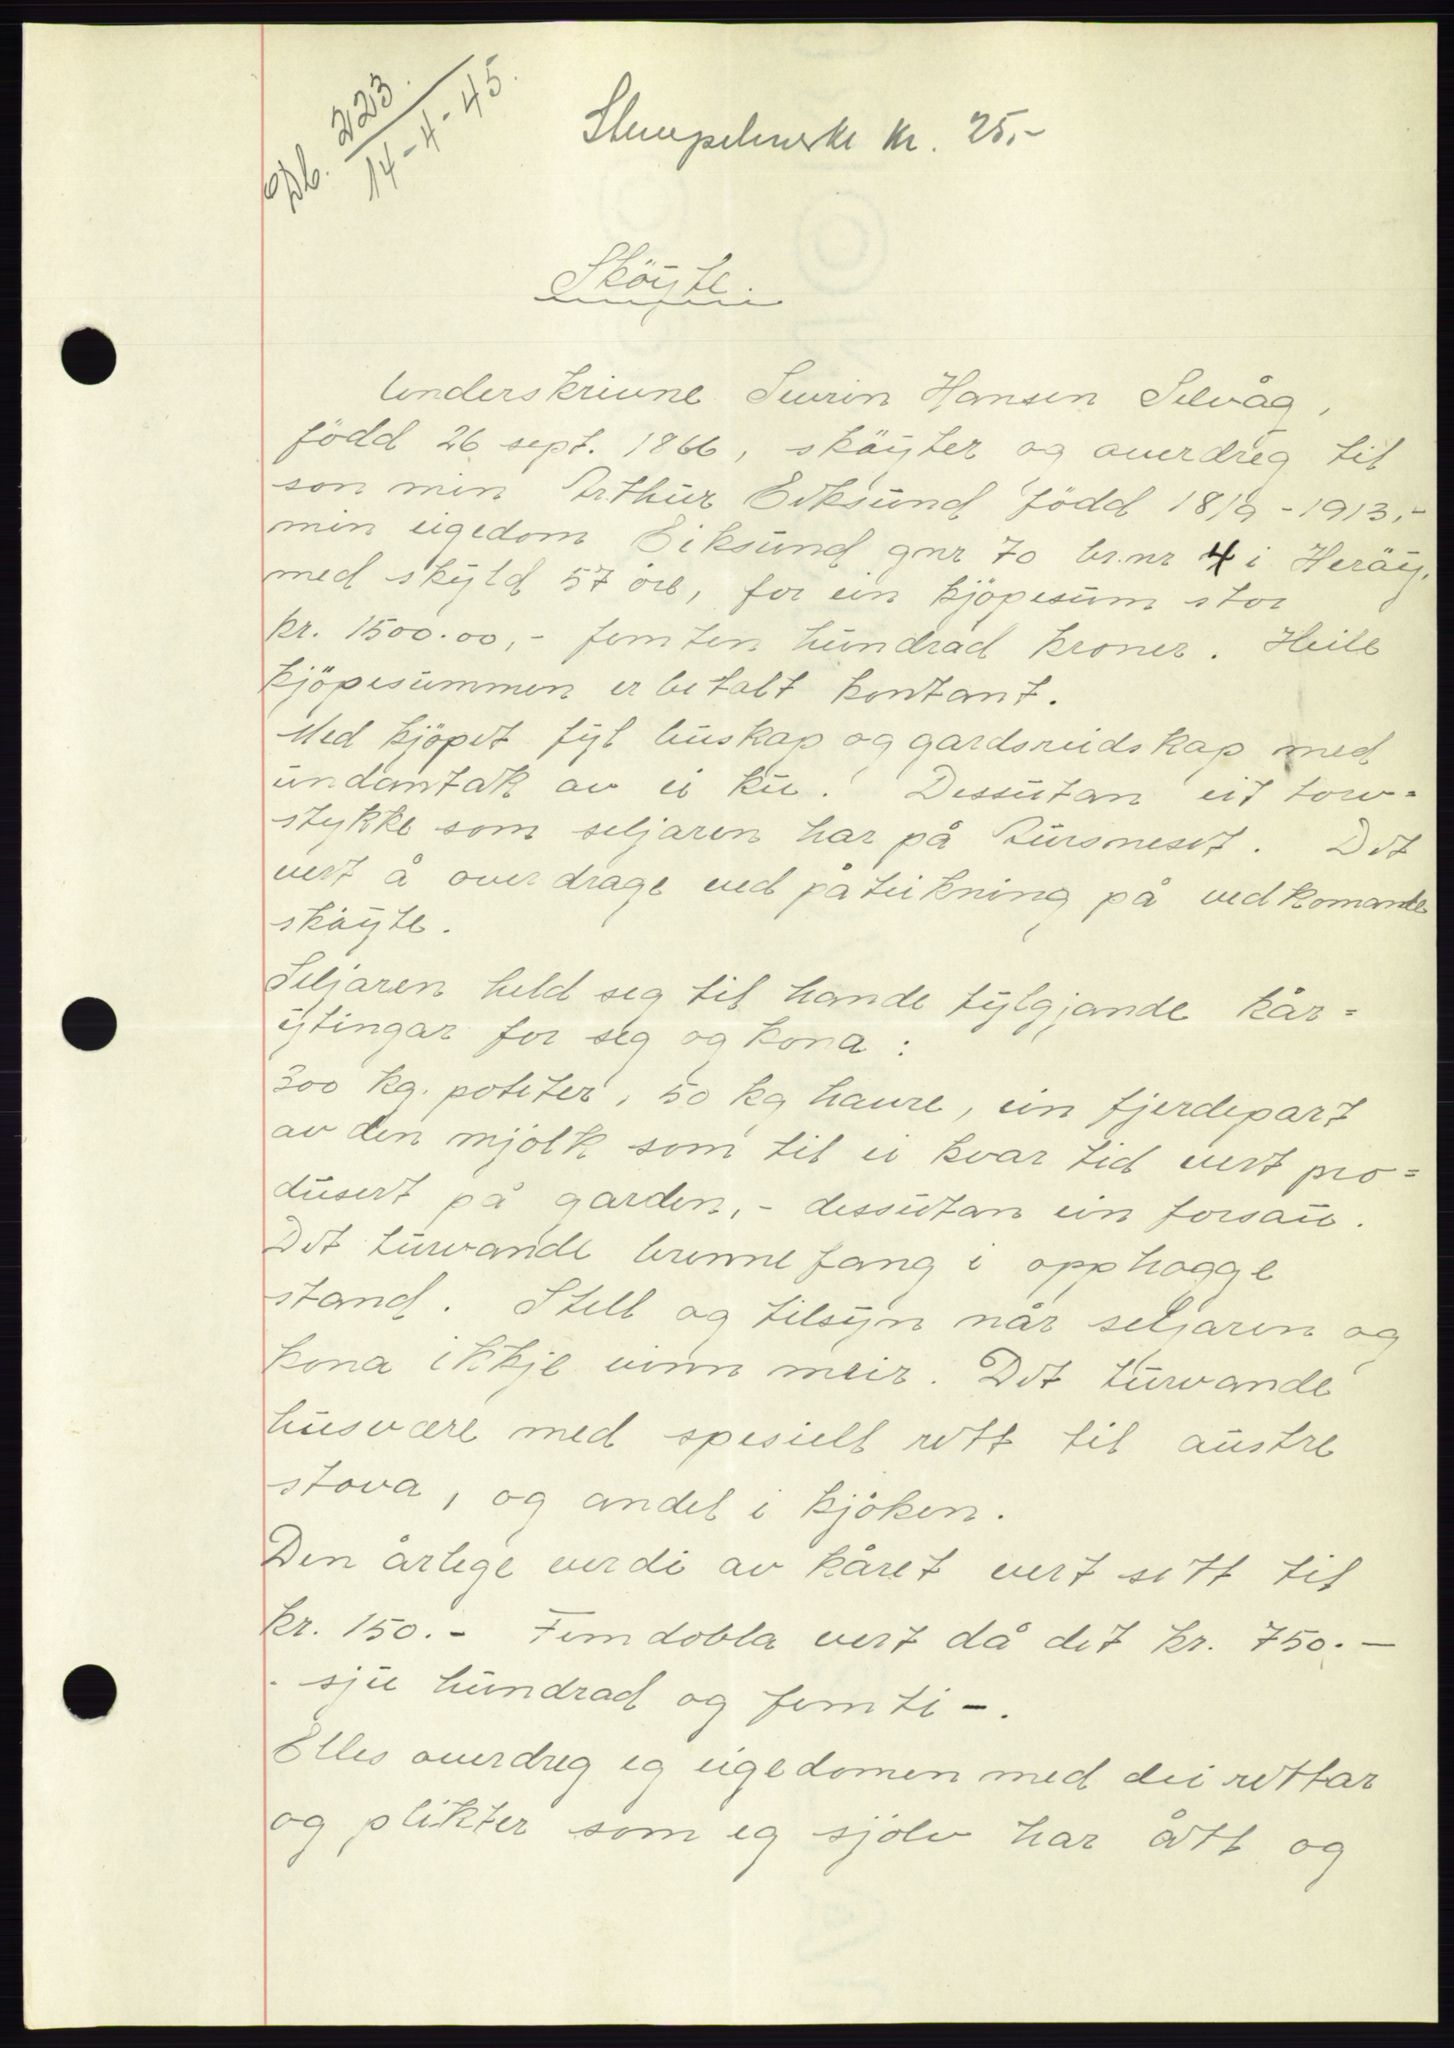 Db. 223.
14-4-45.
Stempelmerke kr. 25,-
Sköyte.
Underskrivne Sevrin Hansen Selvåg,
född 26 sept. 1866, sköyter og averdreg til
son min Arthur Eiksund född 18/9-1913,-
min eigedom Eiksund gnr 70 br.nr 4 i Heröy,
med skyld 57 öre, for ein kjöpesum stor
kr. 1500.00,- femten hundrad kroner. Heile
kjöpesummen er betalt kontant.
Med kjöpet fyl buskap og gardsreidskap med
undantak av ei ku. Dessutan eit torv=
stykke som seljaren har på Kursneset. Det
vert å overdrage ved påteikning på vedkomande
sköyte.
Seljaren held seg til hande fylgjande kår=
ytingar for seg og kona:
300 kg. poteter, 50 kg havre, ein fjerdepart
av den mjölk som til ei kvar tid vert pro=
dusert på garden,- dessutan ein forsau.
Det turvande brennefang i opphogge
stand. Stell og tilsyn når seljaren og
kona ikkje vinn meir. Det turvande
husvære med spesiell rett til austre
stova, og andel i kjöken.
Den årlege verdi av kåret vert sett til
kr. 150.- Femdobla vert då det kr. 750.-
- sju hundrad og femti -.
Elles averdreg eg eigedomen med dei rettar
og plikter som eg sjölv har ått og